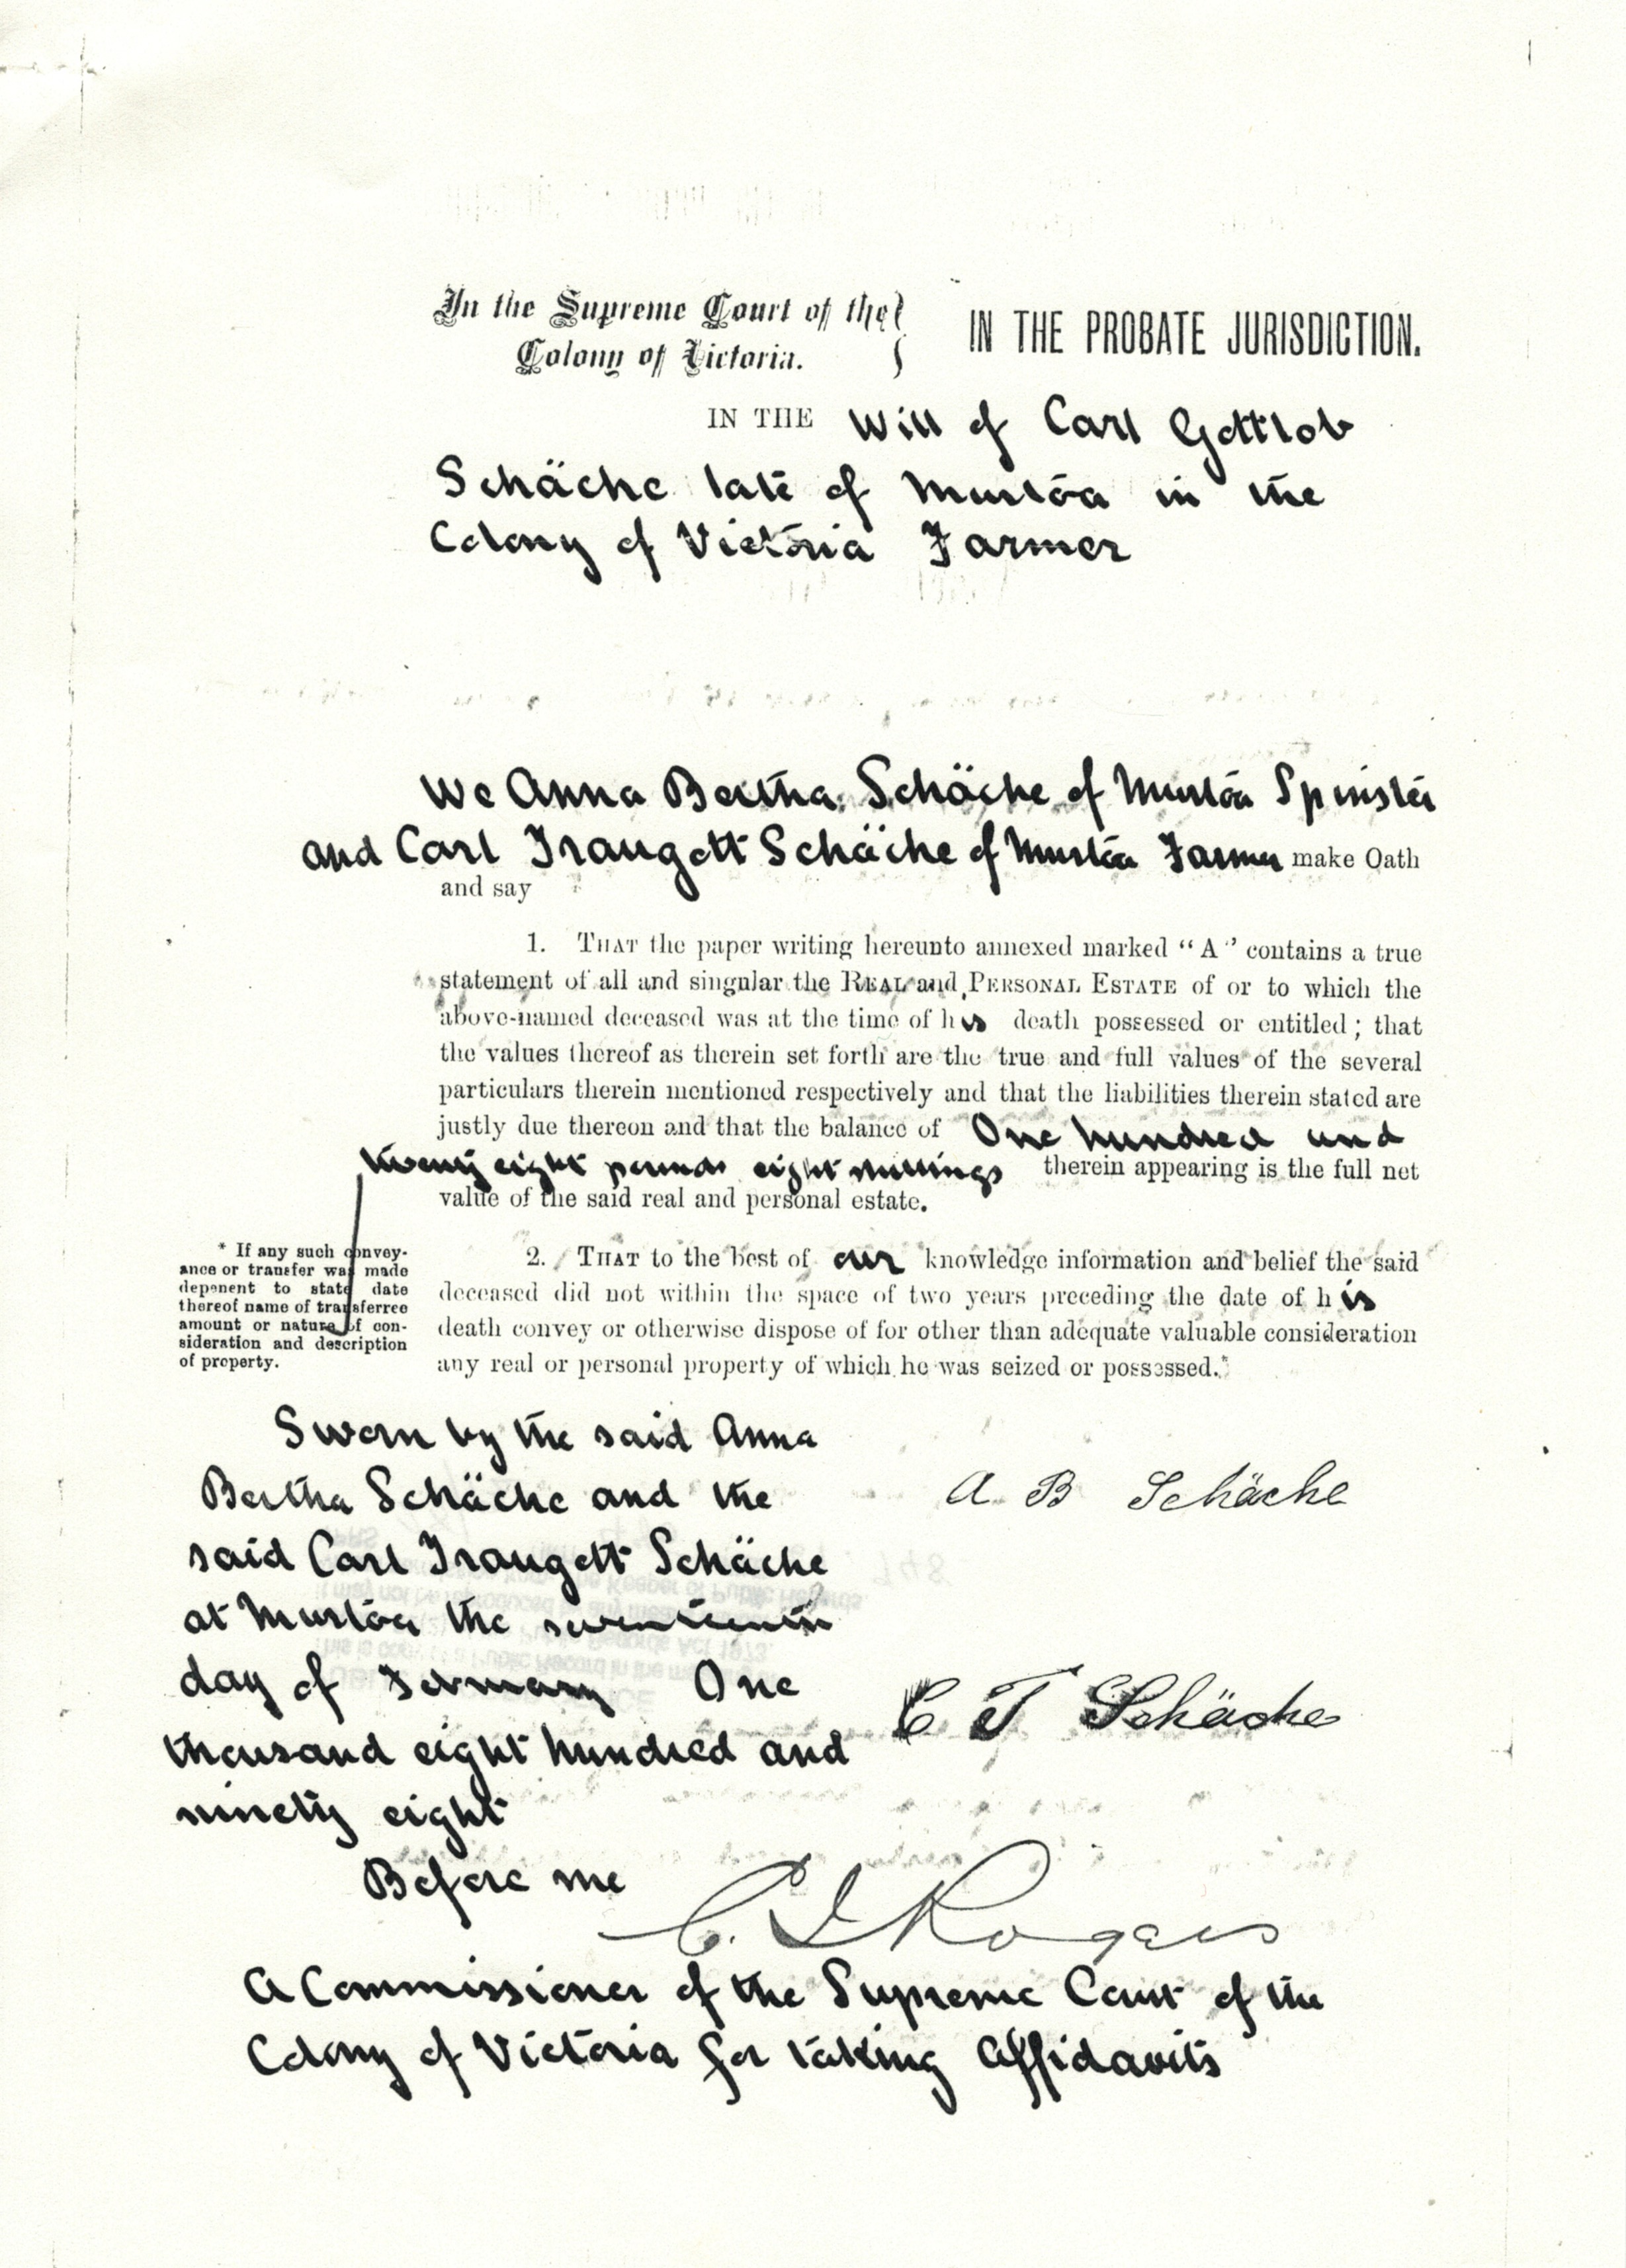 In the Supreme Court of the
Colony of Victoria.
IN THE PROBATE JURISDICTION.
IN THE Will of Carl Gottlob
Schäche late of Murtoa in the
Colony of Victoria Farmer
We Anna Bertha Schäche of Murtoa Spinster
and Carl Traugott Schäche of Murtoa Farmer make Oath
and say
1. THAT the paper writing hereunto annexed marked "A" contains a true
statement of all and singular the REAL and PERSONAL ESTATE of or to which the
above-named deceased was at the time of his death possessed or entitled; that
the values thereof as therein set forth are the true and full values of the several
particulars therein mentioned respectively and that the liabilities therein stated are
justly due thereon and that the balance of One hundred and
twenty eight pounds eight shillings therein appearing is the full net
value of the said real and personal estate.
2. THAT to the best of our knowledge information and belief the said
deceased did not within the space of two years preceding the date of his
death convey or otherwise dispose of for other than adequate valuable consideration
any real or personal property of which he was seized or possessed.*
* If any such convey-
ance or transfer was made
deponent to state date
thereof name of transferree
amount or nature of con-
sideration and description
of property.
Sworn by the said Anna
Bertha Schäche and the
said Carl Traugott Schäche
at Murtoa the seventeenth
day of February One
thousand eight hundred and
ninety eight
A B Schäche
C T Schäche
Before me
C. Rogers
A Commissioner of the Supreme Court of the
Colony of Victoria for taking Affidavits